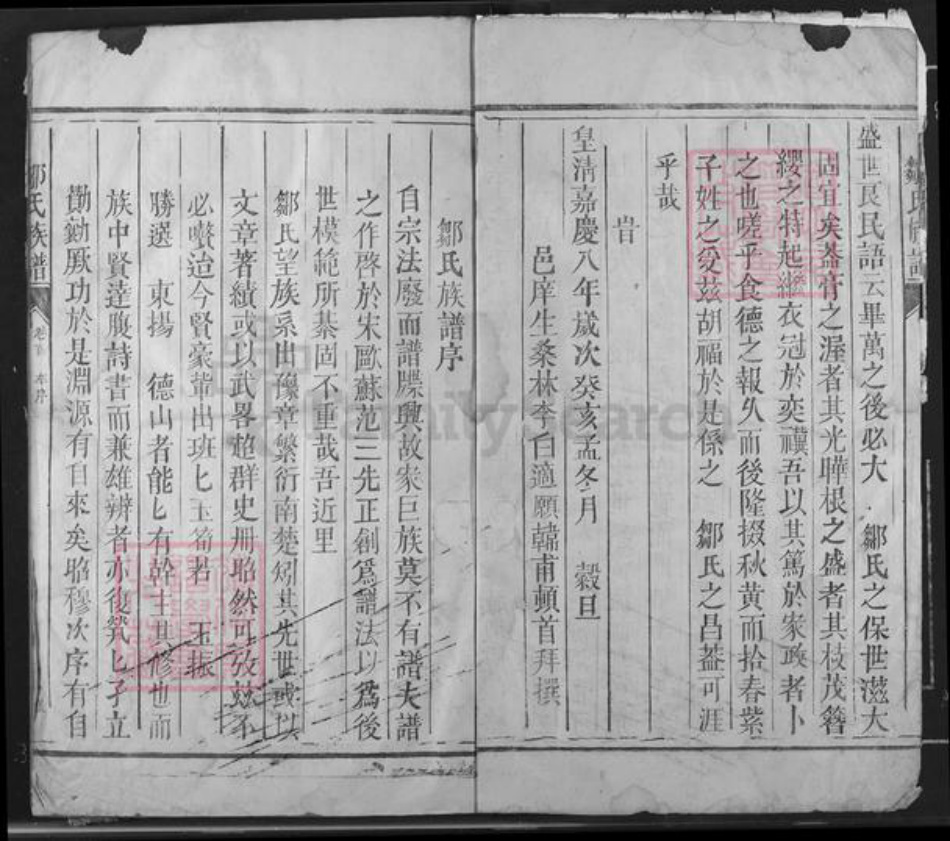 盛世良民語云畢萬之後必大　鄒氏之保世滋大
固宜矣葢膏之渥者其光曄根之盛者其枝茂簪
纓之特起繼衣冠於奕禩吾以其篤於家政者卜
之也嗟乎食德之報久而後隆掇秋黄而拾春紫
子姓之受茲胡福於是係之　鄒氏之昌葢可涯
乎哉
旹
皇清嘉慶八年歲次癸亥孟冬月　穀旦
邑庠生桑林李白適願韓甫頓首拜撰
鄒氏族譜序
自宗法廢而譜牒興故家巨族莫不有譜夫譜
之作啓於宋歐蘇范三先正創爲譜法以爲後
世模範所綦固不重哉吾近里
鄒氏望族系出豫章繁衍南楚矧其先世或以
文章著績或以武畧超群史册昭然可攷茲不
必囋迨今賢豪輩出班匕玉筍若　玉振
勝選　東揚　德山者能匕有幹主其修也而
族中賢達腹詩書而兼雄辨者亦復煢匕孑立
勷勷厥功於是淵源有自來矣昭穆次序有自
鄒氏族譜
卷首
本序
FamilySearch